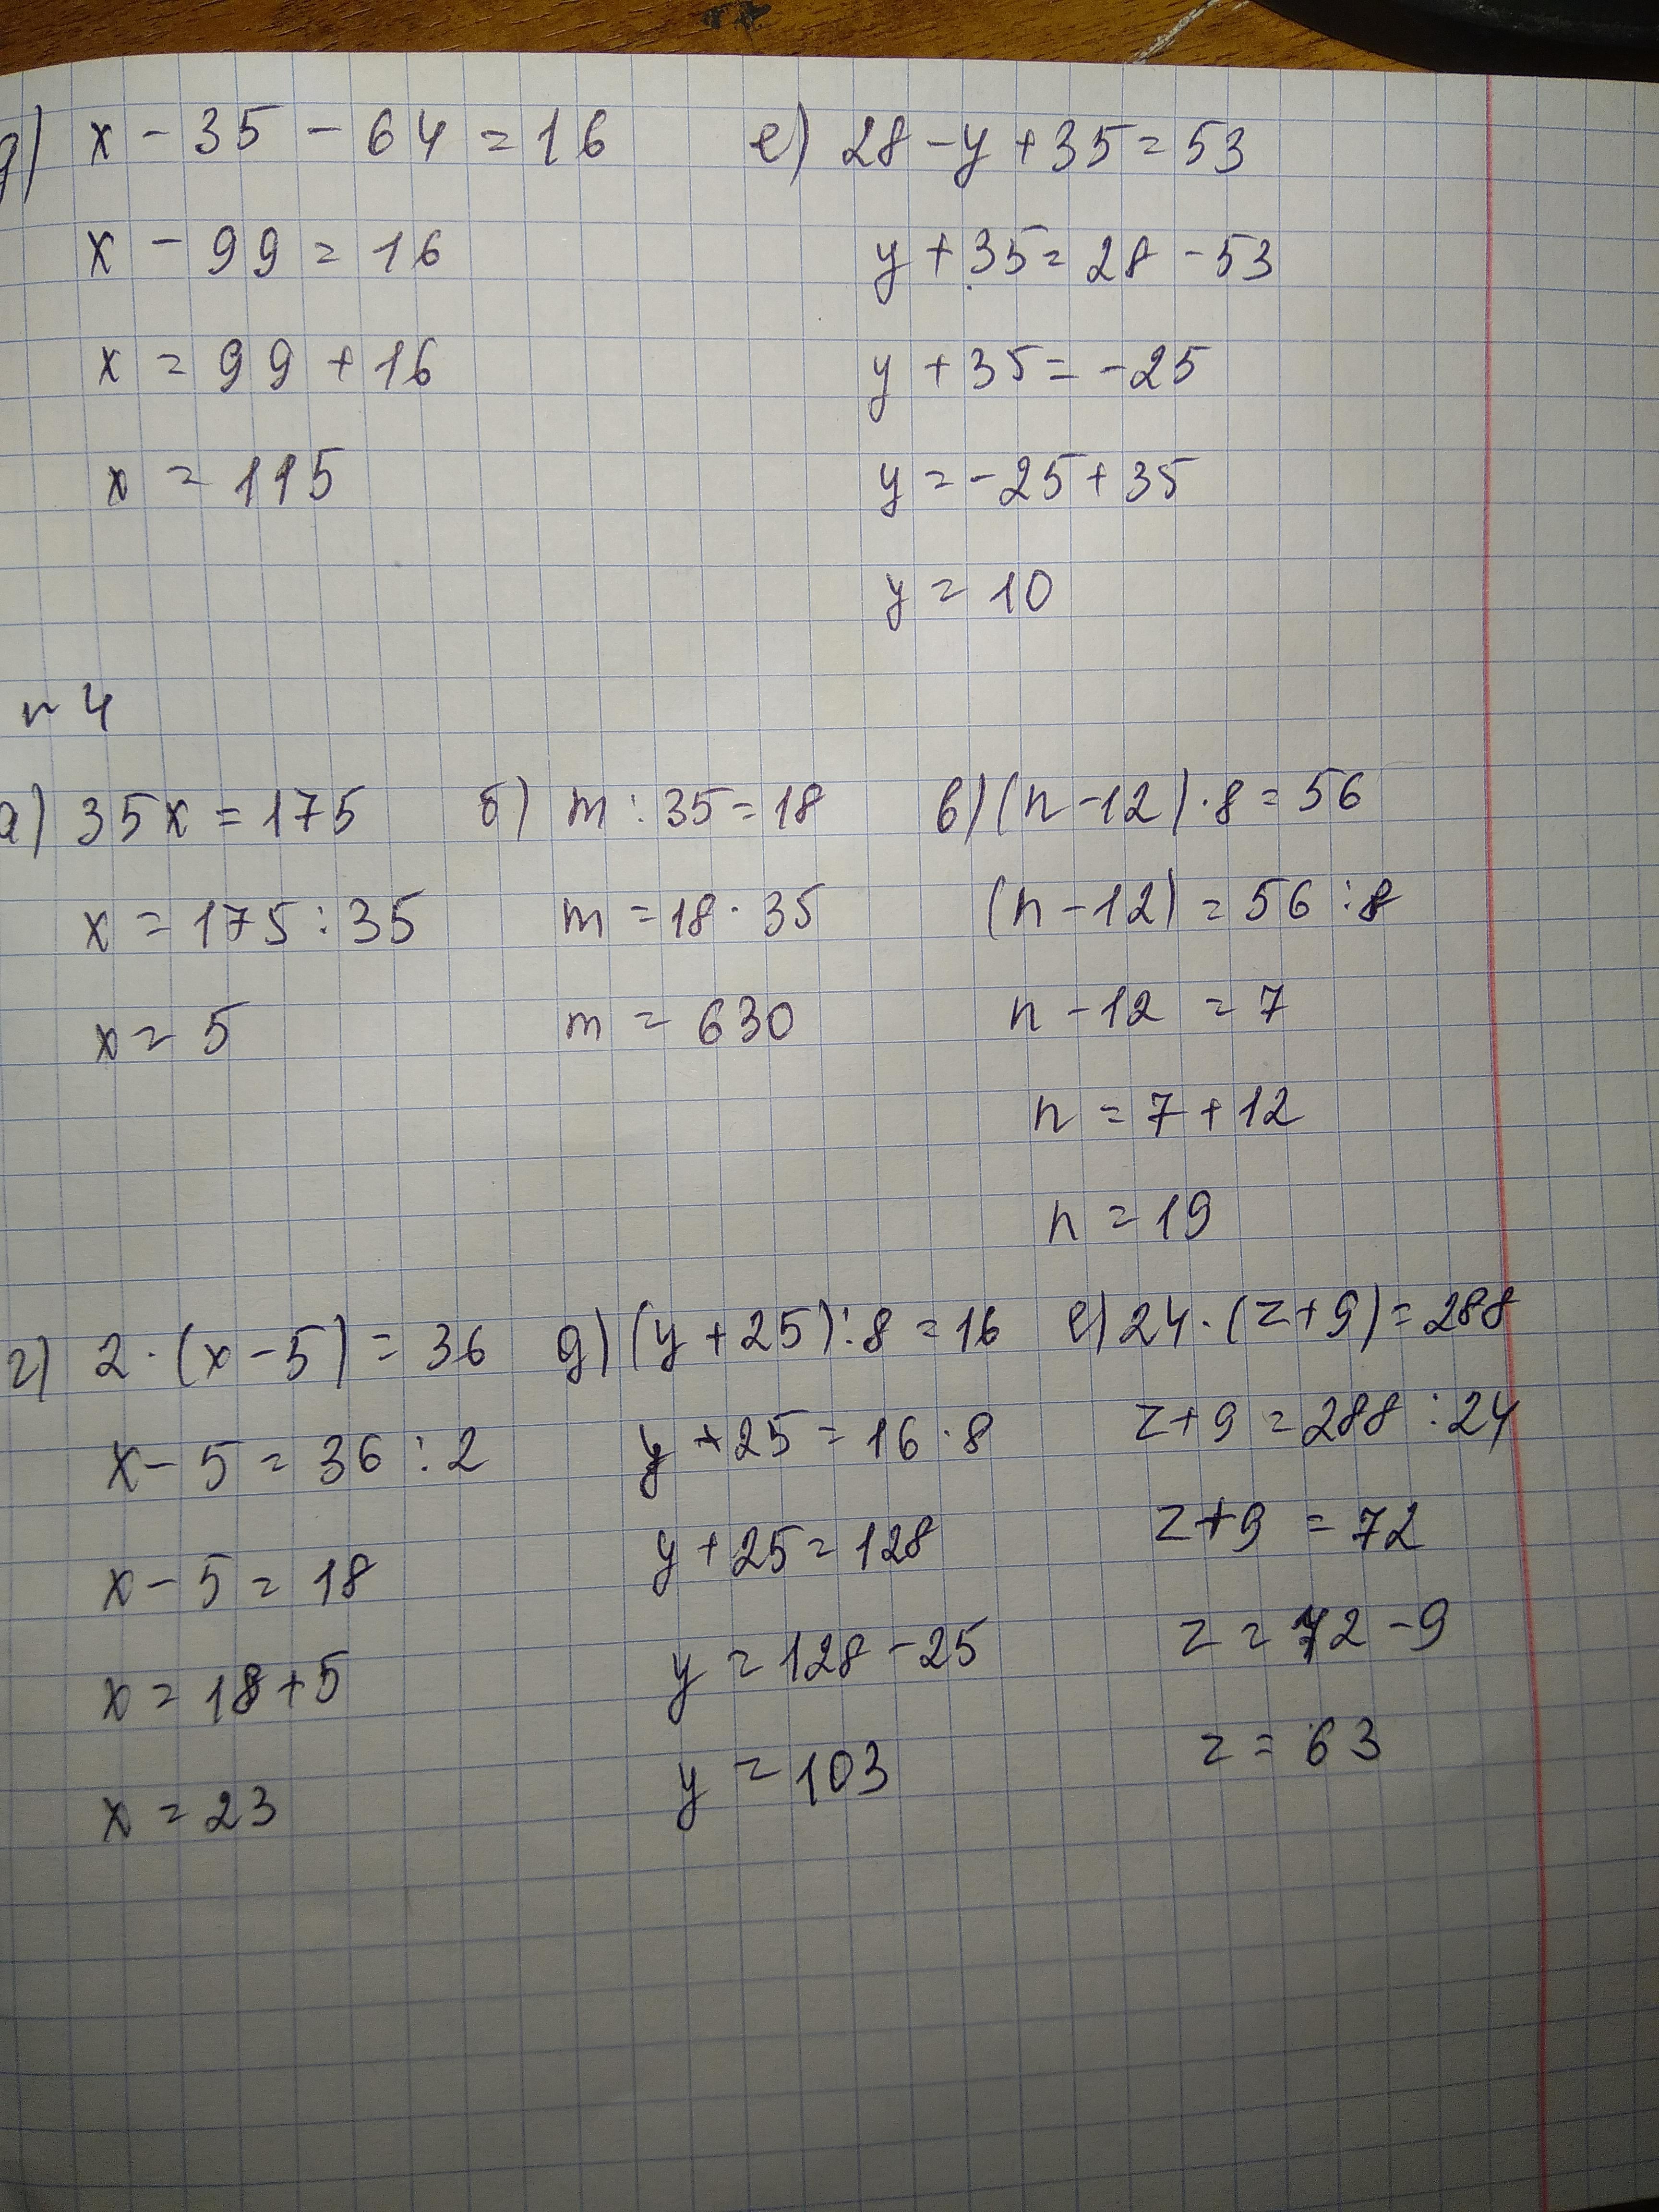 д) x - 35 - 64 = 16 е) 28 - y + 35 = 53
x - 99 = 16 y + 35 = 28 - 53
x = 99 + 16 y + 35 = -25
x = 115 y = -25 + 35
y = 10
n 4
а) 35x = 175 б) m : 35 = 18 в) (n - 12) · 8 = 56
x = 175 : 35 m = 18 · 35 (n - 12) = 56 : 8
x = 5 m = 630 n - 12 = 7
n = 7 + 12
n = 19
г) 2 · (x - 5) = 36 д) (y + 25) : 8 = 16 е) 24 · (z + 9) = 288
x - 5 = 36 : 2 y + 25 = 16 · 8 z + 9 = 288 : 24
x - 5 = 18 y + 25 = 128 z + 9 = 72
x = 18 + 5 y = 128 - 25 z = 72 - 9
x = 23 y = 103 z = 63